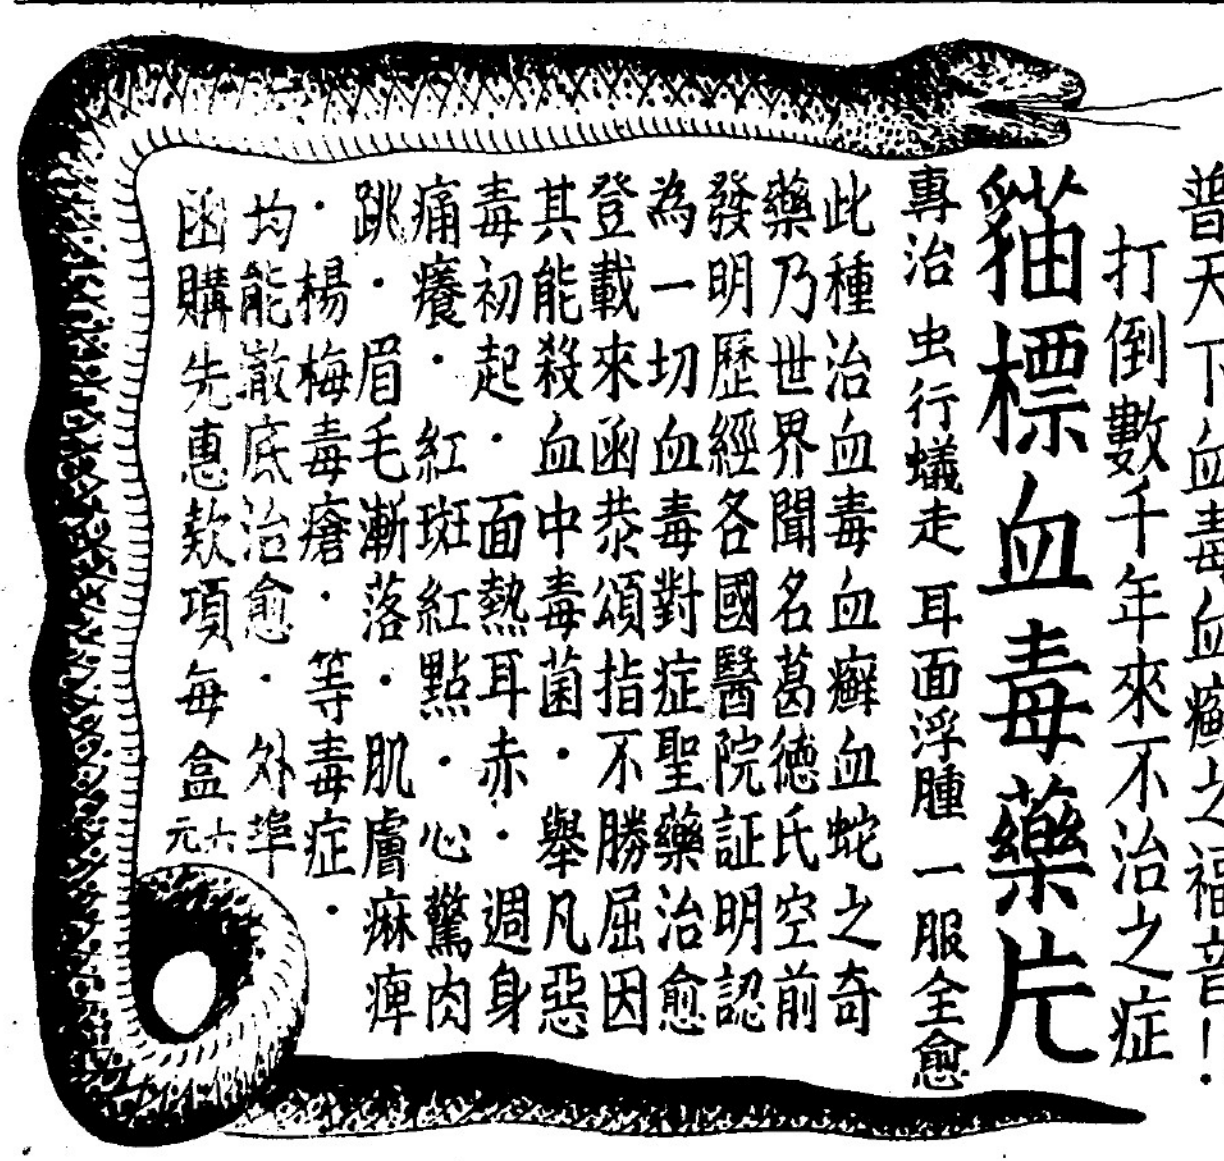 普天下血毒血癬之福音！
打倒數千年來不治之症
貓標血毒藥片
專治 虫行蟻走 耳面浮腫 一服全愈
此種治血毒血癬血蛇之奇
藥乃世界聞名葛德氏空前
發明歷經各國醫院証明認
為一切血毒對症聖藥治愈
登載來函恭頌指不勝屈因
其能殺血中毒菌·舉凡惡
毒初起·面熱耳赤·週身
痛癢·紅斑紅點·心驚肉
跳·眉毛漸落·肌膚麻痺
·楊梅毒瘡·等毒症·
均能澈底治愈·外埠
函購先惠款項每盒六元